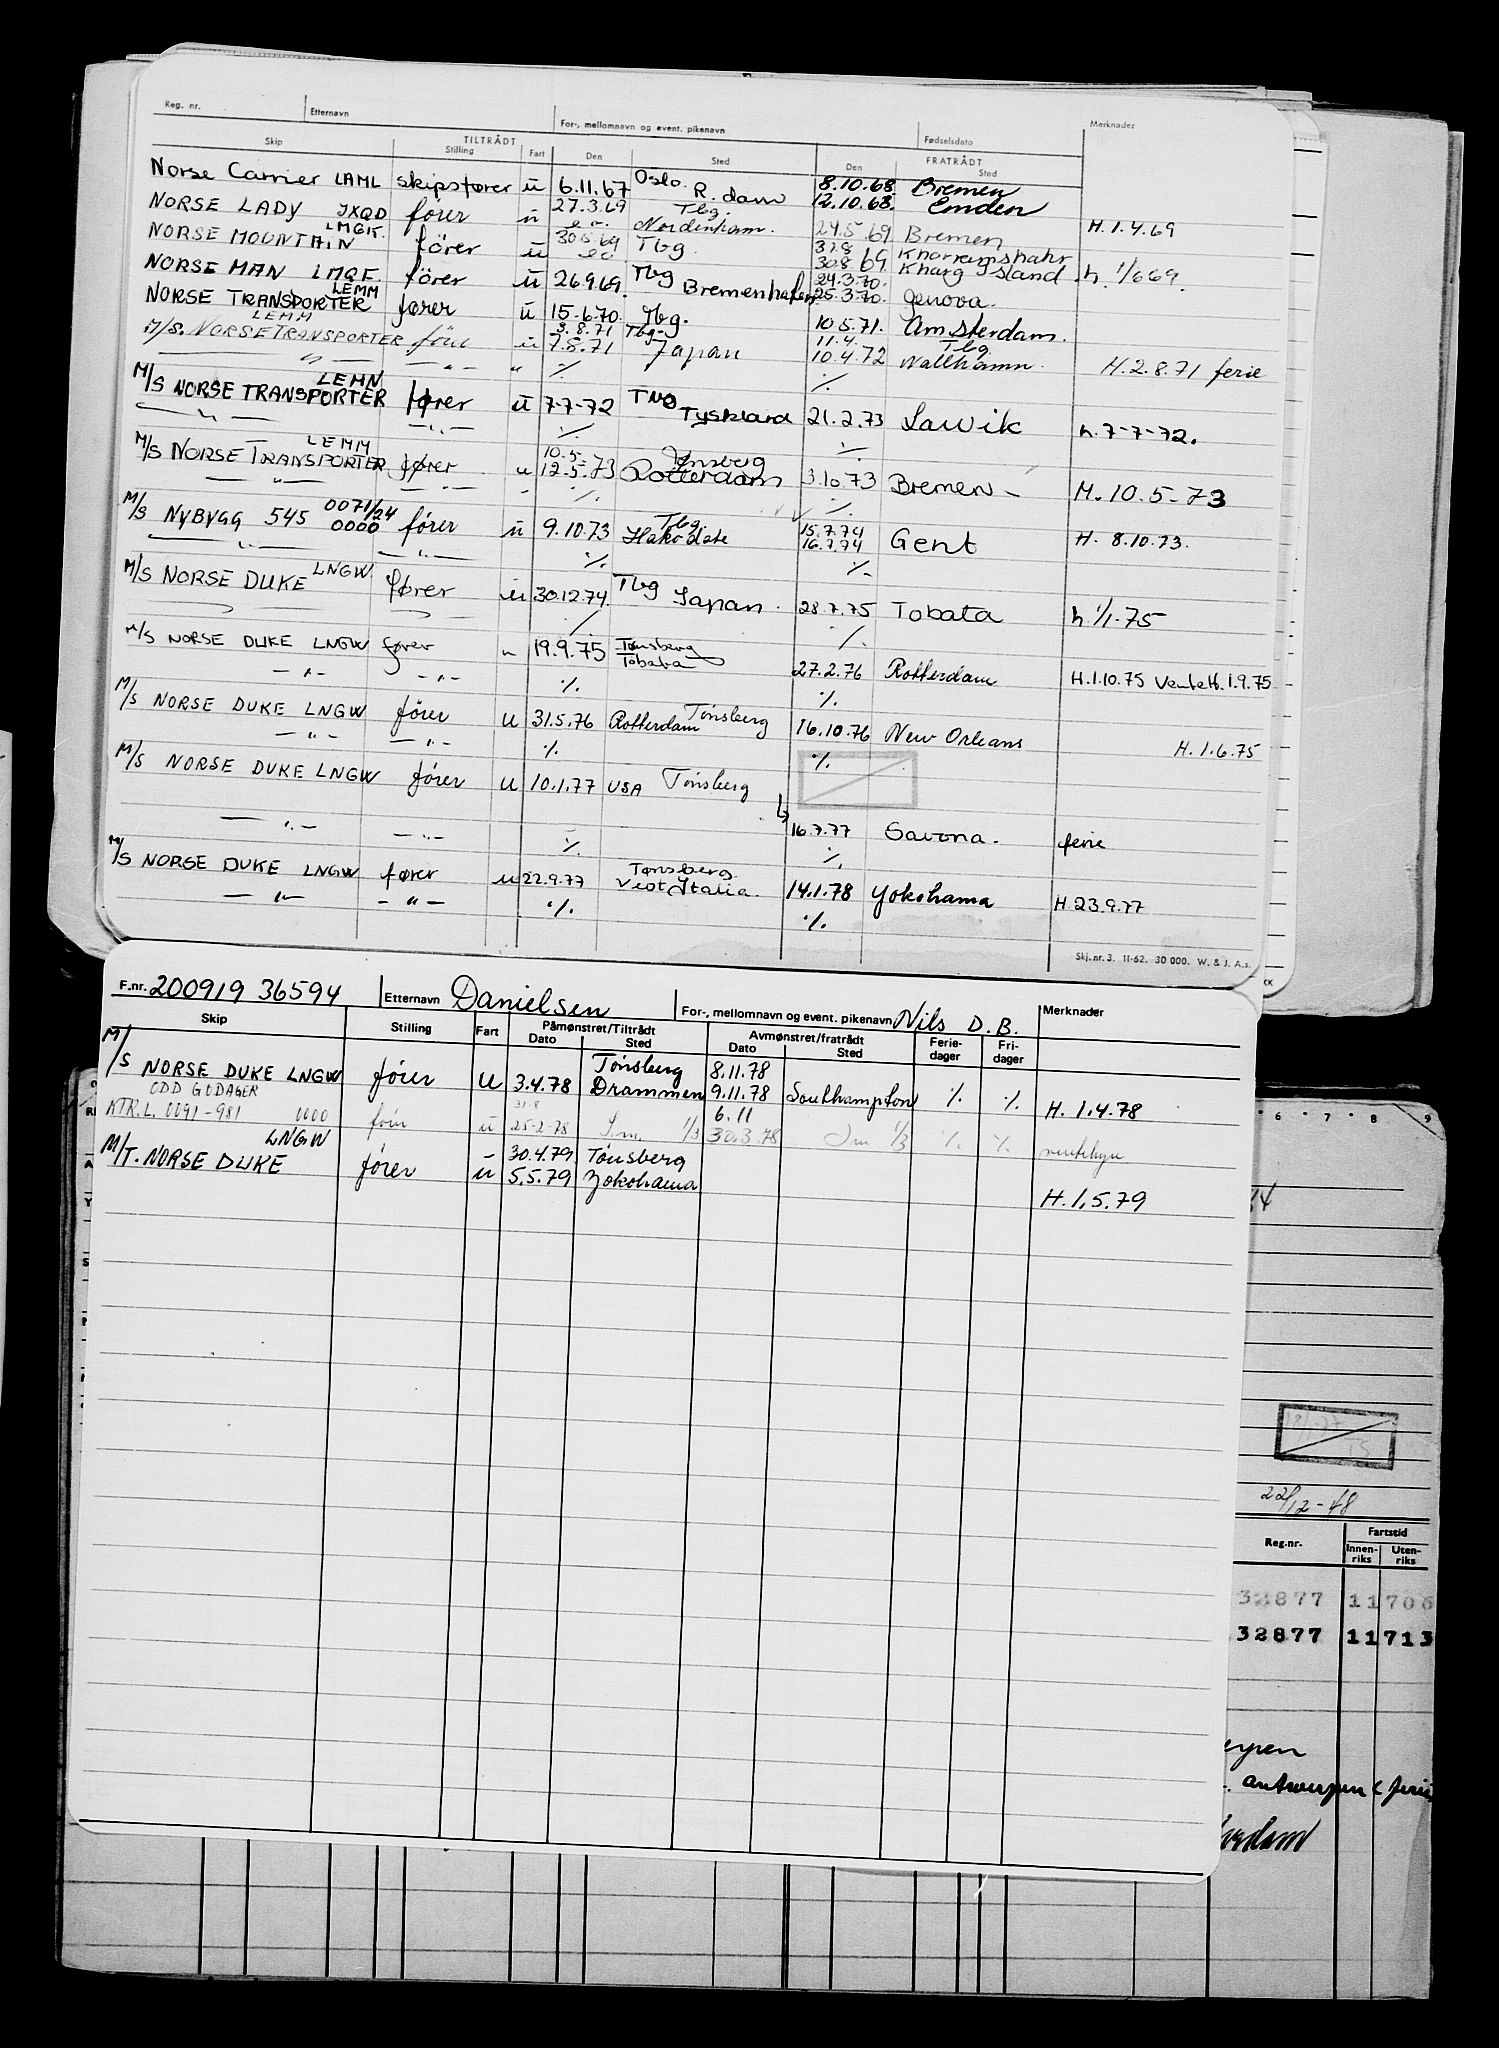 Reg. nr. Etternavn For-, mellomnavn og event. pikenavn Fødselsdato Merknader
Skip TILTRÅDT Stilling Fart Den Sted FRATRÅDT Den Sted
Norse Carrier LAML skipsfører ü 6.11.67 Oslo. R.dam 8.10.68. Bremen
12.10.68. Emden
NORSE LADY JXQD fører ü 27.3.69 Tbg. Nordenham. 24.5.69 Bremen H.1.4.69
NORSE MOUNTAIN LMGK. fører ü 30.5.69 Tbg 31.8 30.8.69 Khorramshahr Kharg Island h. 1/6 69.
NORSE MAN LMQF fører ü 26.9.69. Tbg Bremenhafen 24.3.70. 25.3.70. Genova.
NORSE TRANSPORTER LEMM fører ü 15-6.70. Tbg. 10.5.71. Amsterdam.
M/S. NORSE TRANSPORTER LEMM fører ü 3.8.71 7.8.71 Tbg- Japan 11.4. 10.4.72 Tbg Wallhamn. H.2.8.71 ferie
— " — — " — " ·/. ·/.
M/S NORSE TRANSPORTER LEMN fører ü 7-7-72 Tbg Tyskland 21.2.73 Larvik h.7-7-72.
— " — — " — ·/. ·/.
M/S NORSE TRANSPORTER LEMM fører u 10.5- 12.5.73 Tønsberg Rotterdam 3.10.73 Bremen - H. 10.5-73
— " — — " — - ·/. ·/.
M/S NYBYGG 545 0071/24 0000 fører ü 9.10.73 Tbg. Hakodate 15.7.74 16.7.74 Gent H. 8.10.73.
— " — — " — ·/. ·/.
M/S NORSE DUKE LNGW fører ü 30.12.74. Tbg Japan. 28.7.75 Tobata h. 1/1-75
·/. ·/.
M/S NORSE DUKE LNGW fører u 19.9.75 Tønsberg Tobata 27.2.76 Rotterdam H.1.10.75 Venteh. 1.9.75
— " — — " — ·/. ·/.
M/S NORSE DUKE LNGW fører u 31.5.76 Rotterdam Tønsberg 16.10.76 New Orleans H.1.6.75
— " — — " — ·/. ·/.
M/S NORSE DUKE LNGW fører u 10.1.77 USA Tønsberg
— " — — " — ·/. 16.7.77 Savona. ferie
·/.
M/S NORSE DUKE LNGW fører u 22.9.77 Tønsberg. Vest Italia. 14.1.78 Yokohama H.23.9.77
— " — — " — ·/. ·/.
Skj. nr. 3. 11-62. 30 000. W. & J. A.s.
KK
F.nr. 200919 36594 Etternavn Danielsen For-, mellomnavn og event. pikenavn Nils D.B. Merknader
Skip Stilling Fart Påmønstret/Tiltrådt Dato Sted Avmønstret/fratrådt Dato Sted Ferie-dager Fri-dager
M/S NORSE DUKE LNGW fører u 3.4.78 Tønsberg Drammen 8.11.78 9.11.78 Southampton ·/. ·/. H. 1.4.78
ODD GODAGER
KTR.L. 0091-981 0000 fører ü 31.8 25-2-78 1/3 6.11 30.3.78 1/3 ·/. ·/. ventehyre
M/T. NORSE DUKE LNGW fører ü 30.4.79. 5.5.79 Tønsberg Yokohama H.1.5.79
6 7 8 9
22/12-48
Reg.nr. Fartstid
Innen-riks Uten-riks
32877 11706
32877 11713
antwerpen (ferie